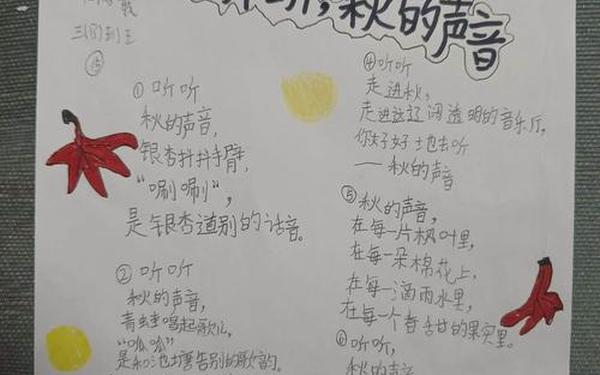 秋的声音
三(8)班王
①听听
秋的声音,
银杏抖抖手臂,
“唰唰”,
是银杏道别的话音。
②听听
秋的声音,
青蛙唱起歌儿,
“呱呱”
是和池塘告别的歌韵。
④听听
走进秋,
走进这辽阔透明的音乐厅,
你好好地去听
——秋的声音
⑤秋的声音,
在每一片枫叶里,
在每一朵棉花上,
在每一滴雨水里,
在每一个香甜的果实里。
⑥听听,
秋的声音